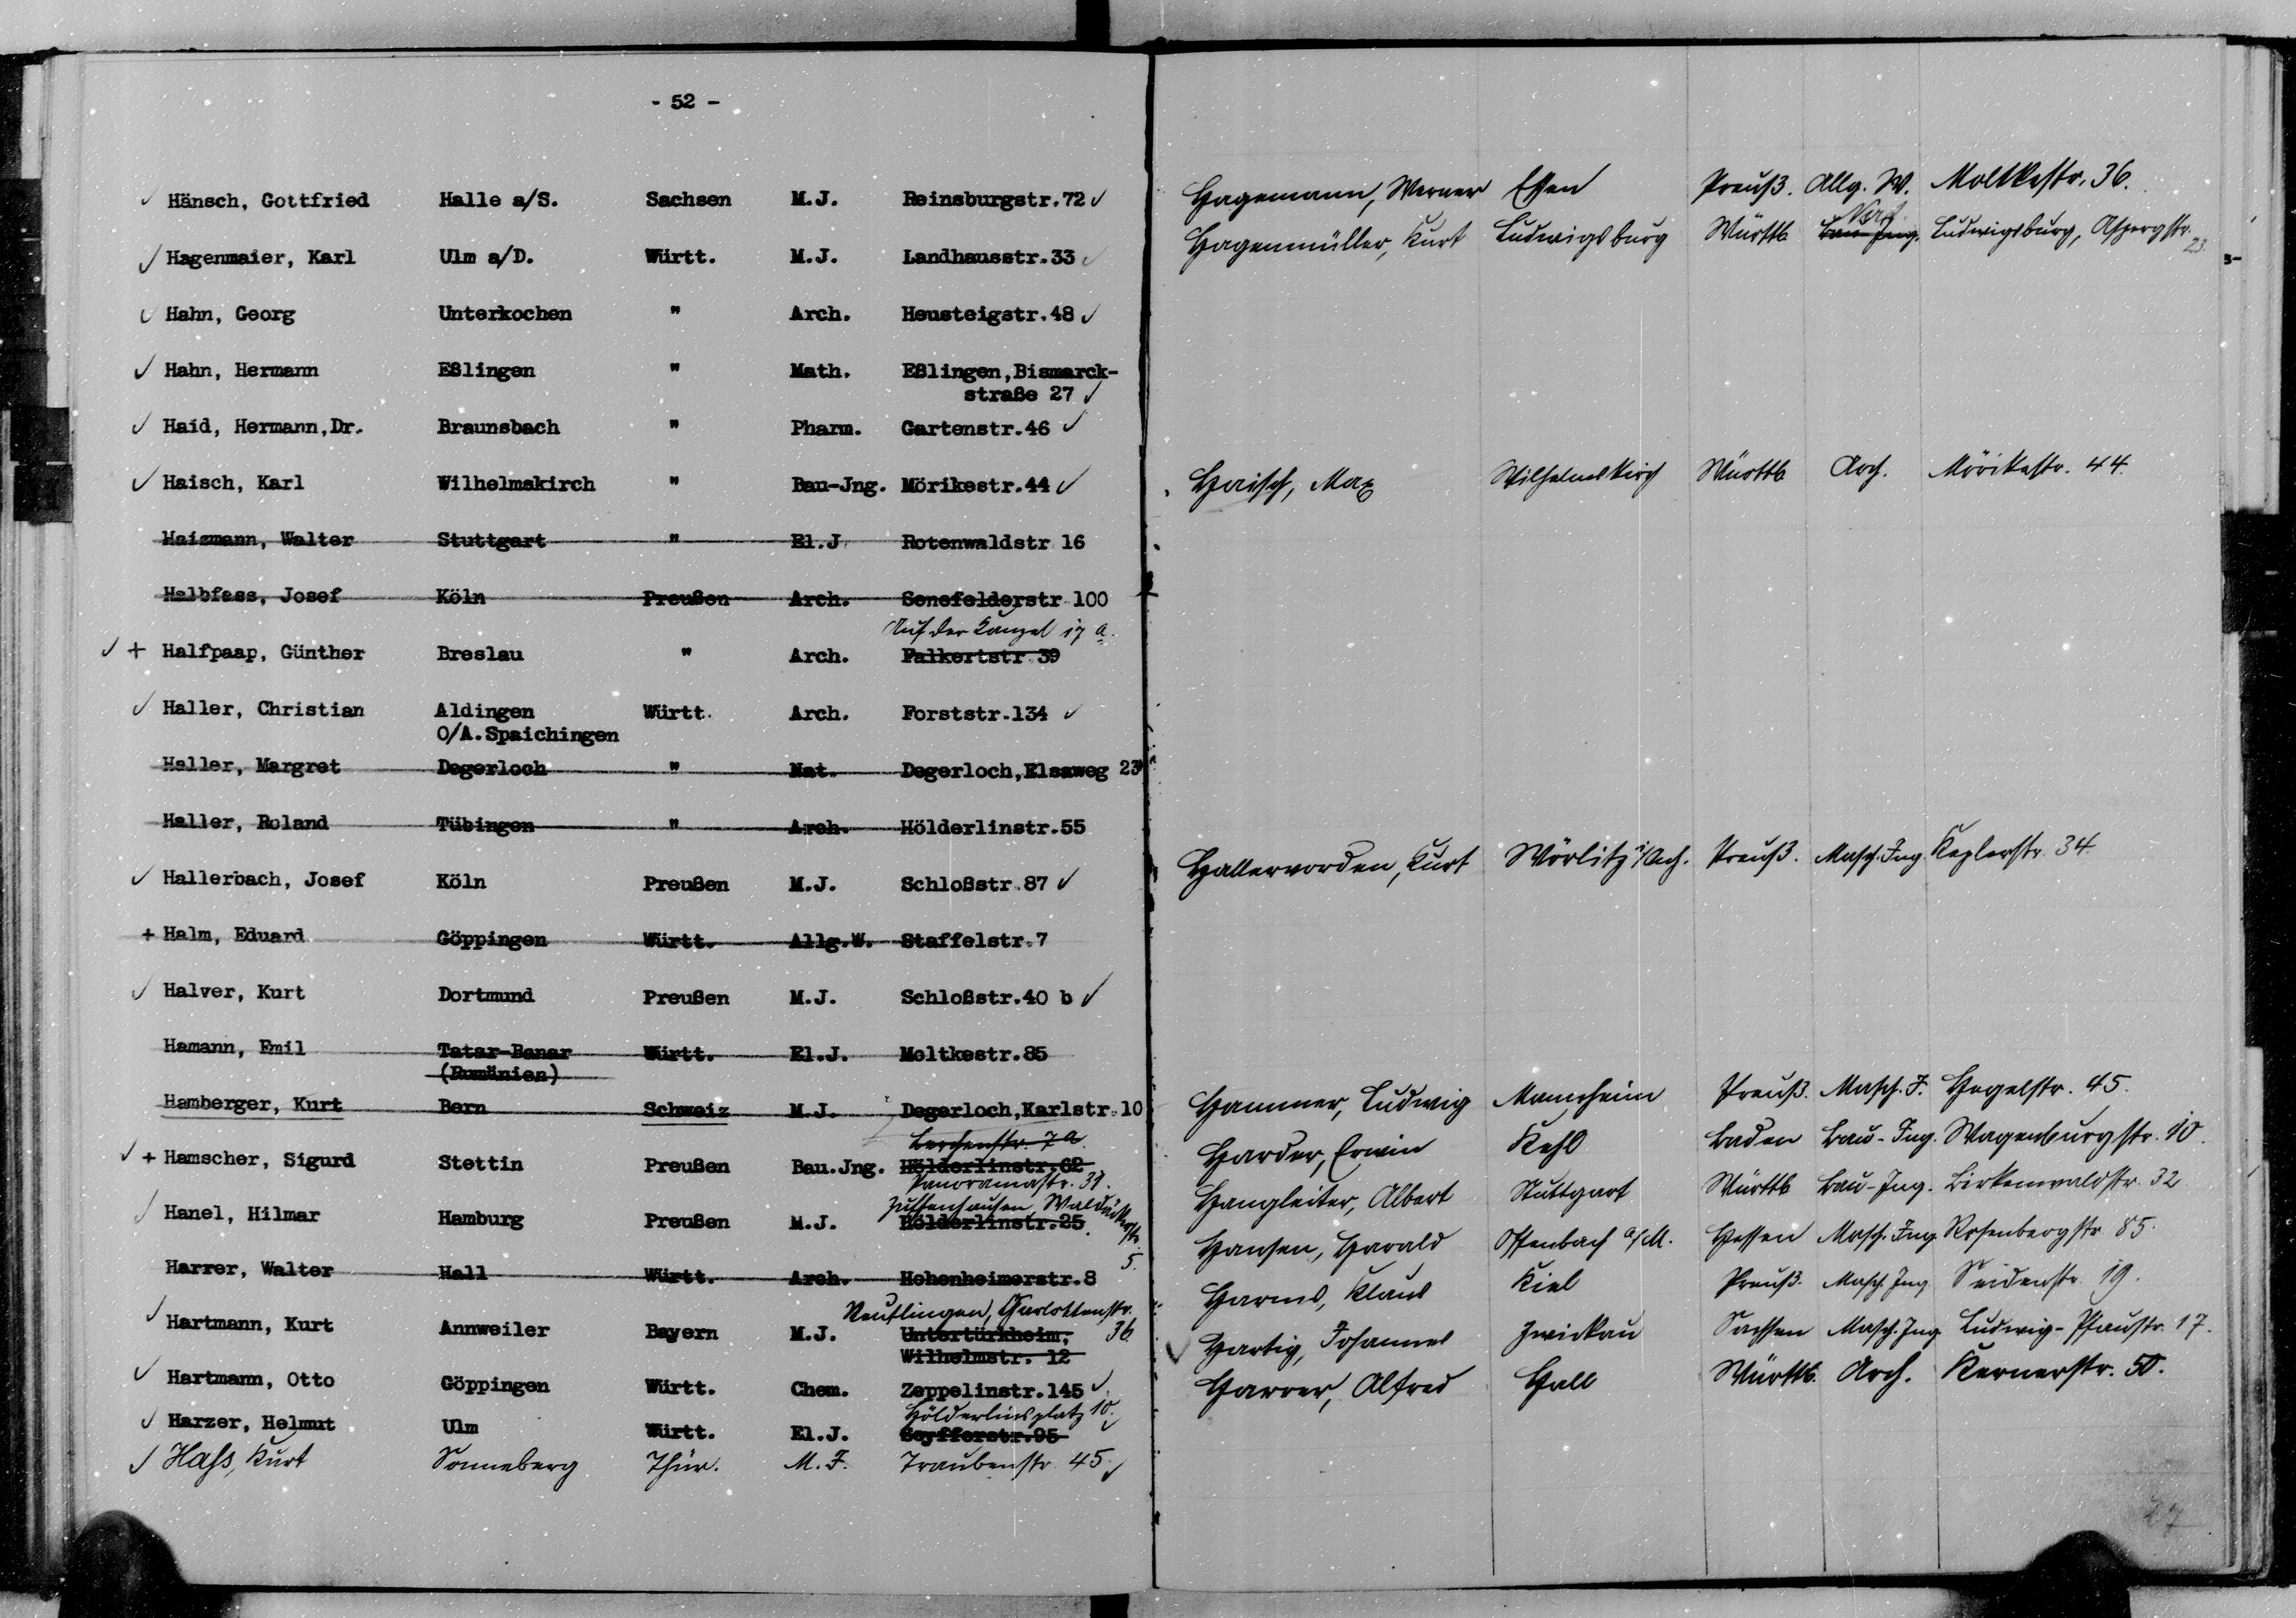 - 52 -
Hänsch, Gottfried Halle a/S. Sachsen M.J. Reinsburgstr.72
Hagenmaier, Karl Ulm a/D. Württ. M.J. Landhausstr.33
Hahn, Georg Unterkochen " Arch. Heusteigstr.48
Hahn, Hermann Eßlingen " Math. Eßlingen,Bismarck-
straße 27
Haid, Hermann,Dr. Braunsbach " Pharm. Gartenstr.46
Haisch, Karl Wilhelmskirch " Bau-Jng. Mörikestr.44
Haismann, Walter Stuttgart " El.J. Rotenwaldstr.16
Halbfass, Josef Köln Preußen Arch. Senefelderstr.100
Auf der Kanzel 17 a.
+ Halfpaap, Günther Breslau " Arch. Falkertstr.39
Haller, Christian Aldingen Württ. Arch. Forststr.134
O/A.Spaichingen
Haller, Margret Degerloch " Nat. Degerloch,Elsaweg 23
Haller, Roland Tübingen " Arch. Hölderlinstr.55
Hallerbach, Josef Köln Preußen M.J. Schloßstr.87
+ Halm, Eduard Göppingen Württ. Allg.W. Staffelstr.7
Halver, Kurt Dortmund Preußen M.J. Schloßstr.40 b
Hamann, Emil Tatar-Banar Württ. El.J. Moltkestr.85
(Rumänien)
Hamberger, Kurt Bern Schweiz M.J. Degerloch,Karlstr.10
Lerchenstr. 7a
+ Hamscher, Sigurd Stettin Preußen Bau.Jng. Hölderlinstr.62
Panoramastr. 31.
Zuffenhausen, Waldäckerstr.
5.
Hanel, Hilmar Hamburg Preußen M.J. Hölderlinstr.25
Harrer, Walter Hall Württ. Arch. Hohenheimerstr.8
Reutlingen, Charlottenstr.
36
Hartmann, Kurt Annweiler Bayern M.J. Untertürkheim,
Wilhelmstr. 12
Hartmann, Otto Göppingen Württ. Chem. Zeppelinstr.145
Hölderlinsplatz 10.
Harzer, Helmut Ulm Württ. El.J. Seyfferstr.95
Haß, Kurt Sonneberg Thür. M.J. Traubenstr. 45.
Hagemann, Werner Essen Preuß. Allg. W. Moltkestr. 36.
Hagenmüller, Kurt Ludwigsburg Württb Bau-Jng. Ludwigsburg, Aspergstr.
23.
Haisch, Max Wilhelmskirch Württb Arch. Mörikestr. 44.
Hallervorden, Kurt Wörlitz i/Anh. Preuß. Masch. Ing. Keplerstr. 34.
Hammer, Ludwig Mannheim Preuß. Masch. J. Hegelstr. 45.
Harder, Erwin Kehl Baden Bau-Ing. Wagenburgstr. 10.
Hangleiter, Albert Stuttgart Württb Bau-Ing. Birkenwaldstr. 32
Hansen, Harald Offenbach a/M. Hessen Masch. Ing. Rosenbergstr. 85.
Harms, Klaus Kiel Preuß. Masch. Ing. Seidenstr. 19.
Hartig, Johannes Zwickau Sachsen Masch. Ing. Ludwig-Pfaustr. 17.
Harrer, Alfred Hall Württb. Arch. Kernerstr. 50.